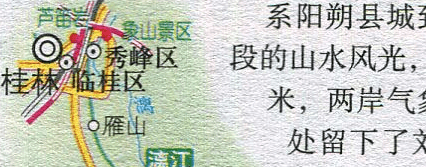 芦笛岩
象山景区
秀峰区
桂林 临桂区
漓
雁山
漓江
系阳朔县城到
段的山水风光，
米，两岸气象
处留下了刘